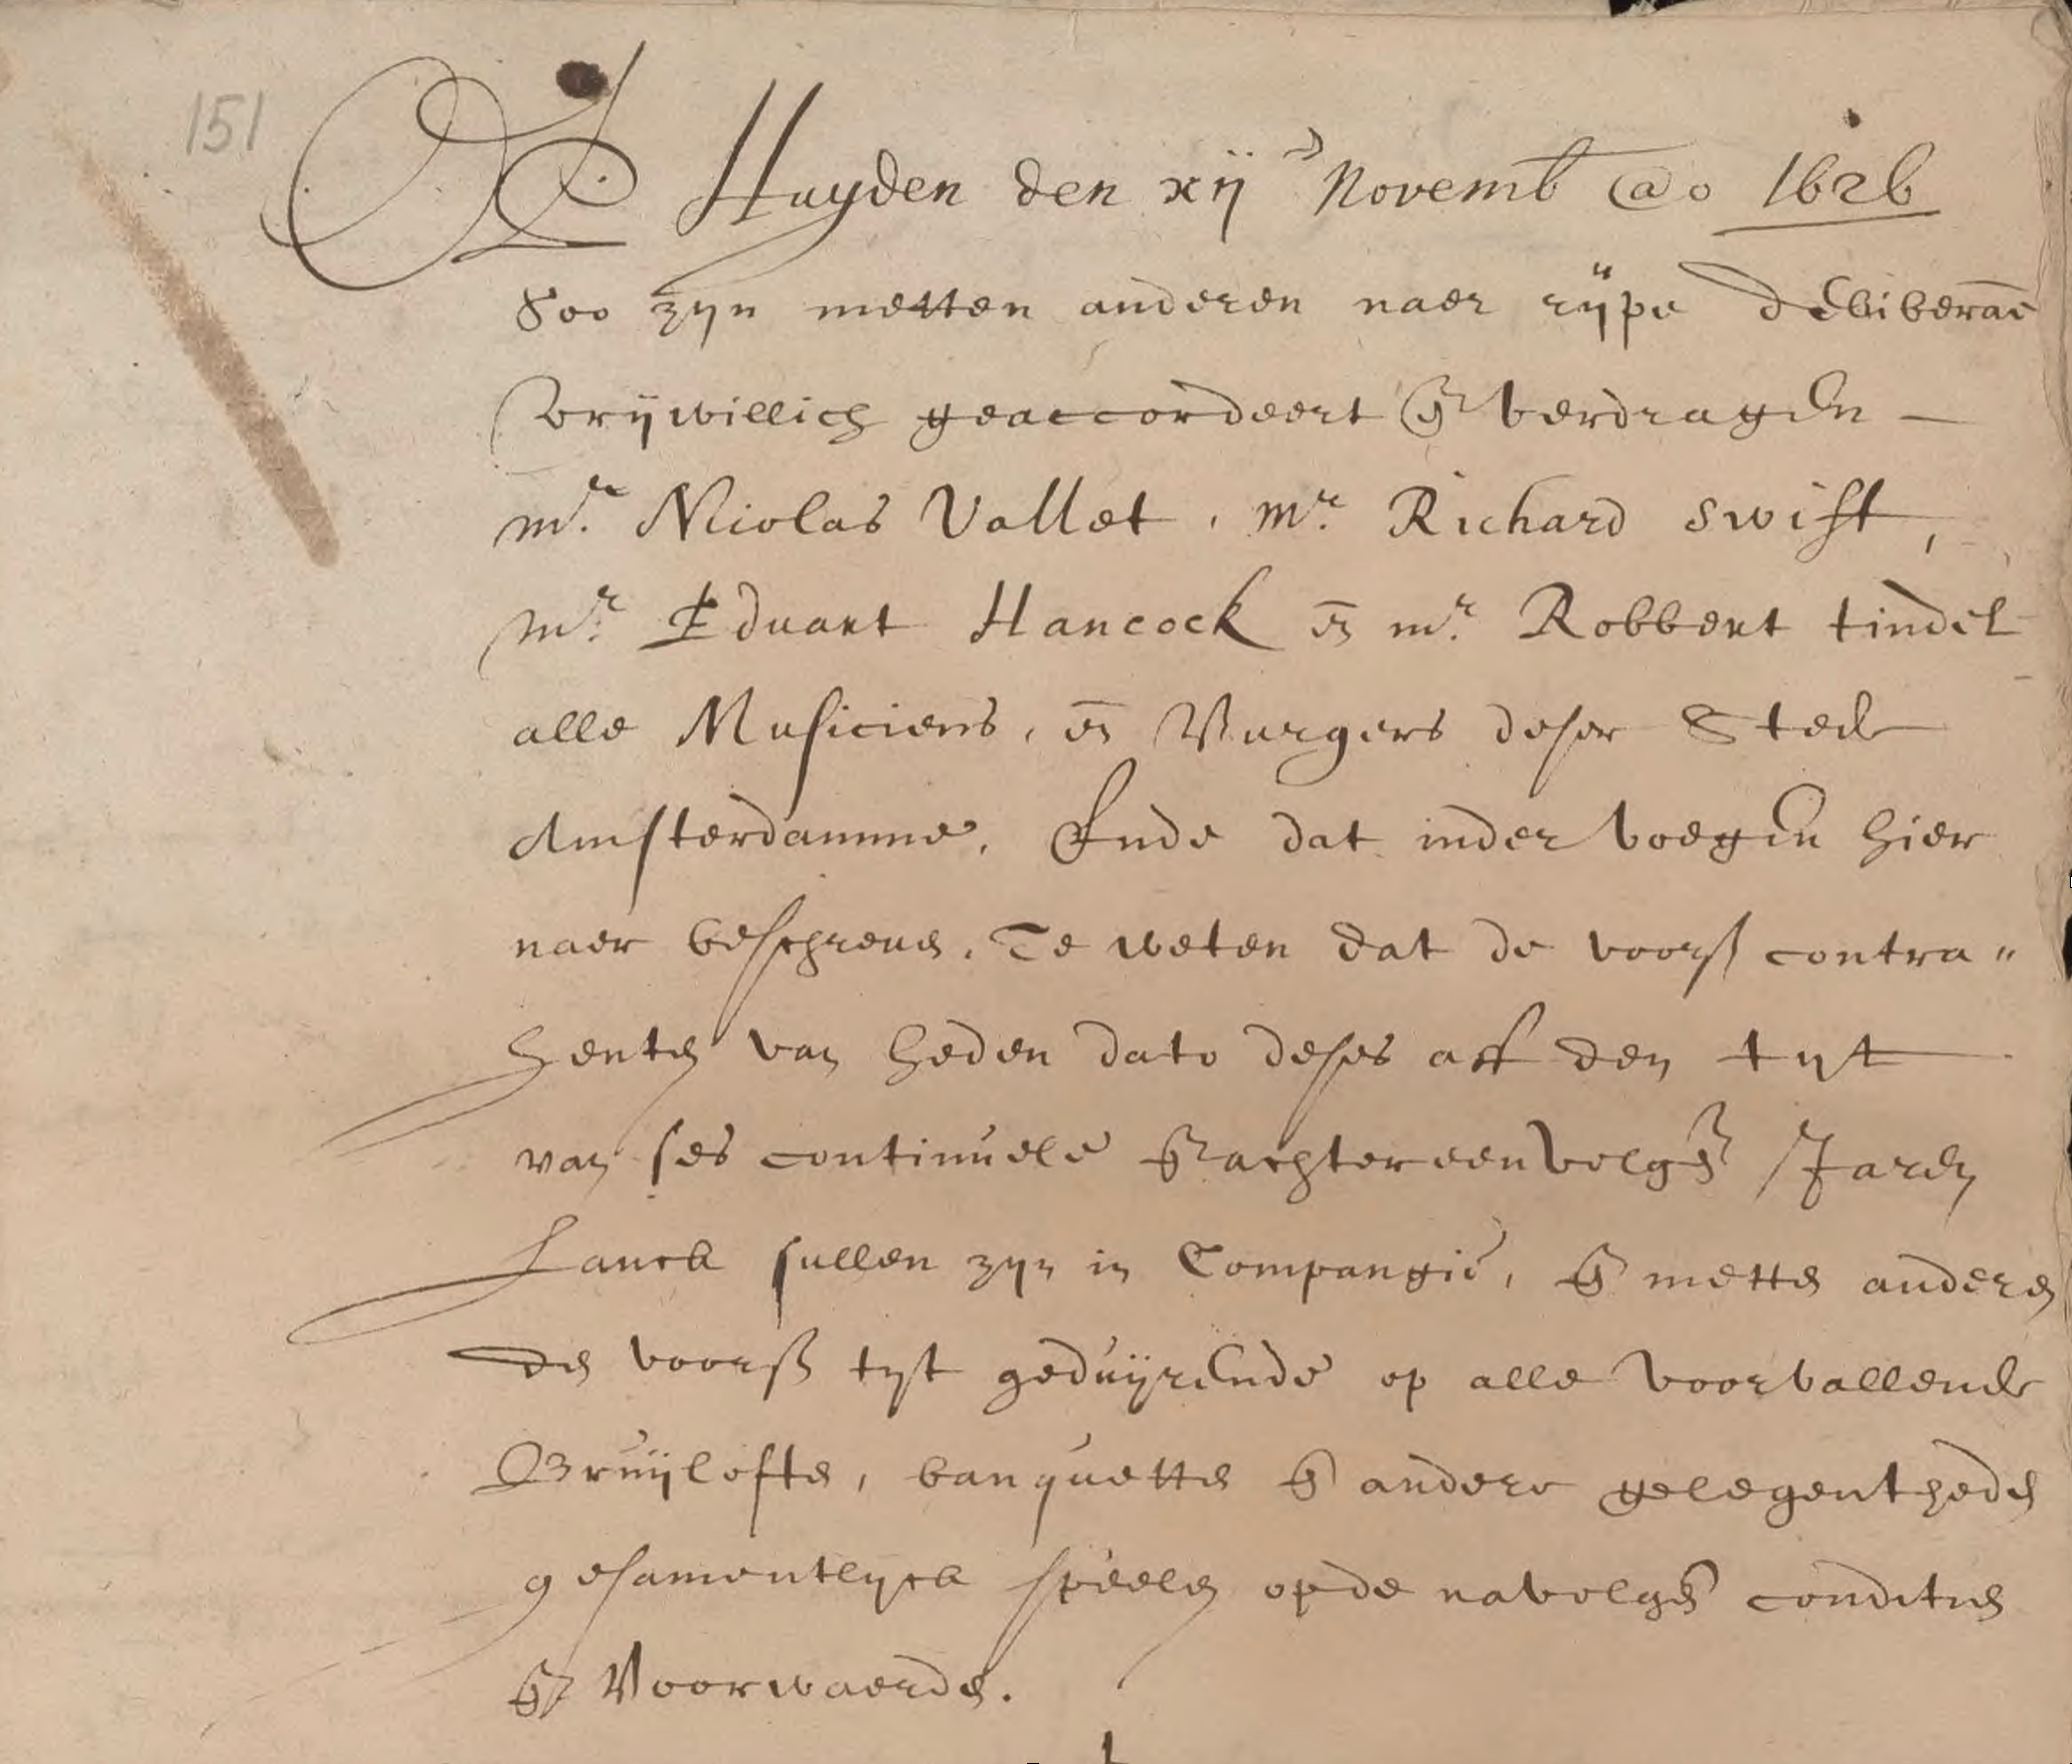 151
Huyden den xij Novemb @o 1626
Soo zijn metten anderen naer rijpe deliberaē
Vrijwillich geaccordeert eñ verdragen —
mr. Niolas Vallet, mr. Richard Swift,
mr. Eduart Hancock eñ mr. Robbert tindel
alle Musiciens, eñ Burgers deser Stede
Amsterdamme, Ende dat inder voegen hier
naer beschreve. Te weten dat de voors contra"
hente van heden dato deses aff den tijt
van ses continuele eñ achtereenvolge Jaren
Lanck sullen zijn in Compangie, eñ mette andere
de voors tijt geduijrende op alle voorvallende
Bruijlofte, banquette eñ andere gelegenthede
gesamentlijck speele opde navolge conditie
eñ Voorwaerde.